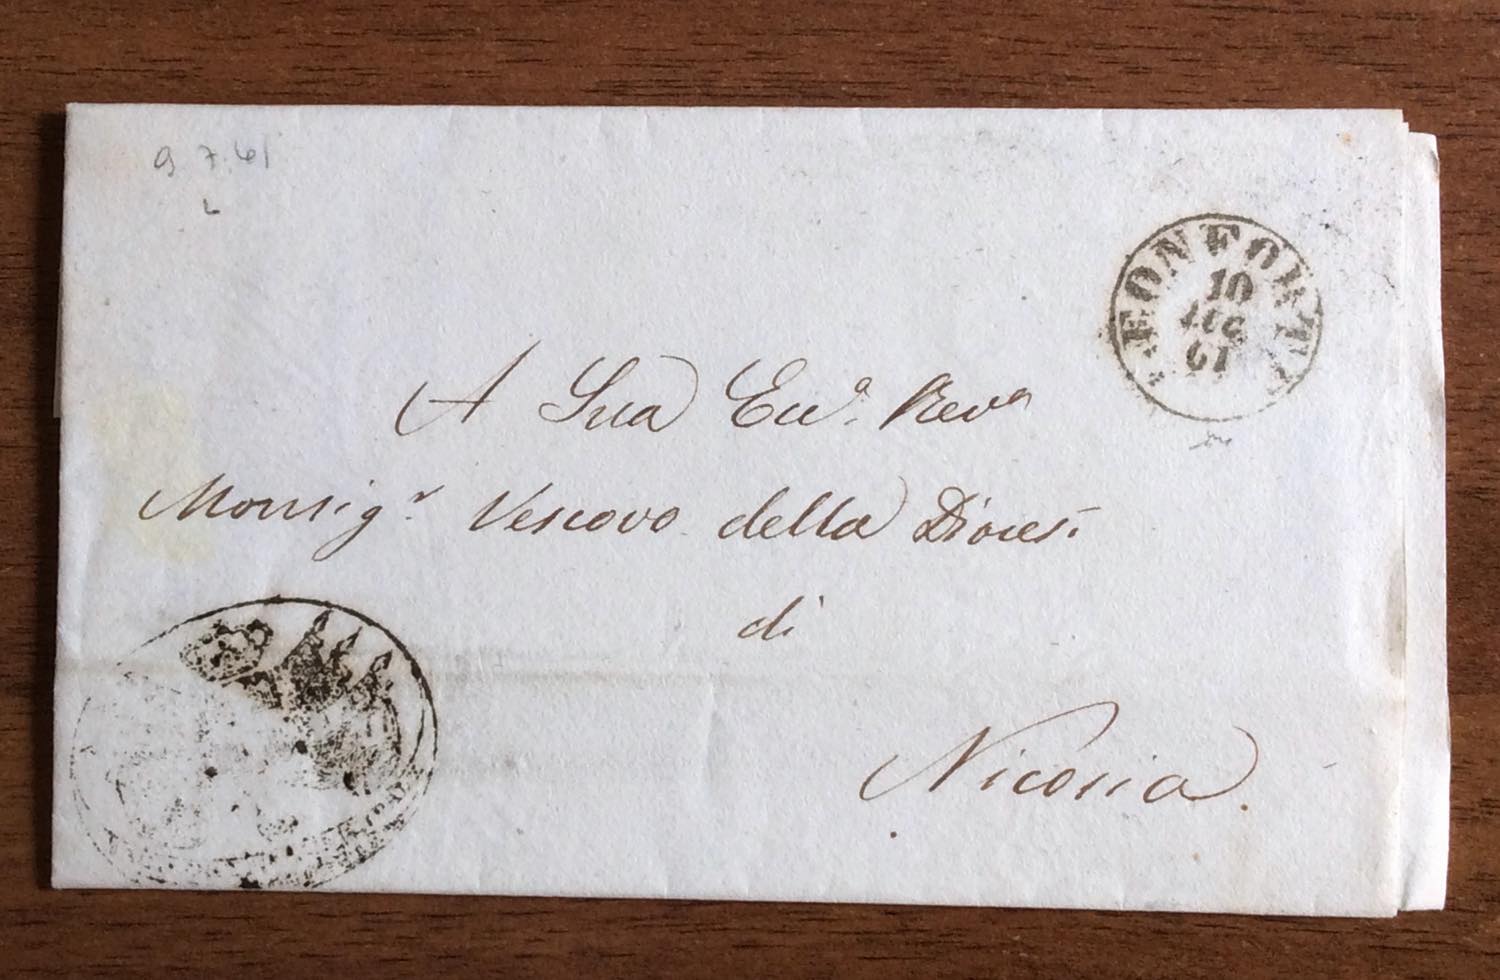 9 7.61
LEONFORTE
10
LUG
61
A Sua Ecc.ª Rev.ª
Monsig.r Vescovo della Diocesi
di
Nicosia.